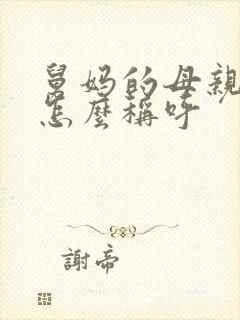 舅妈的母親
怎麼稱呼
謝帝